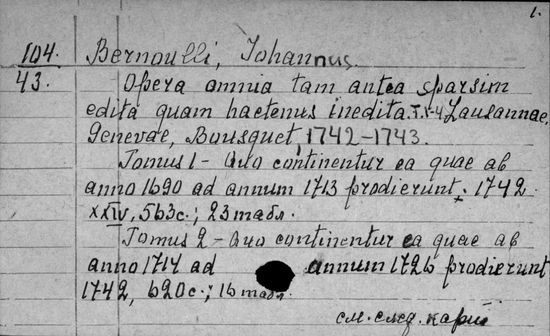 1.
104. Bernoulli, Johannus.
43. Opera omnia tam antea sparsim
edita quam hactenus inedita. T.1-4 Lausannae,
Genevae, Bousquet, 1742-1743.
Tomus 1 - quo continentur ea quae ab
anno 1690 ad annum 1713 prodierunt. 1742
XXIV, 563с.; 23 табл.
Tomus 2 - quo continentur ea quae ab
anno 1714 ad annum 1726 prodierunt
1742, 620с.; 16 табл.
см. след. карт